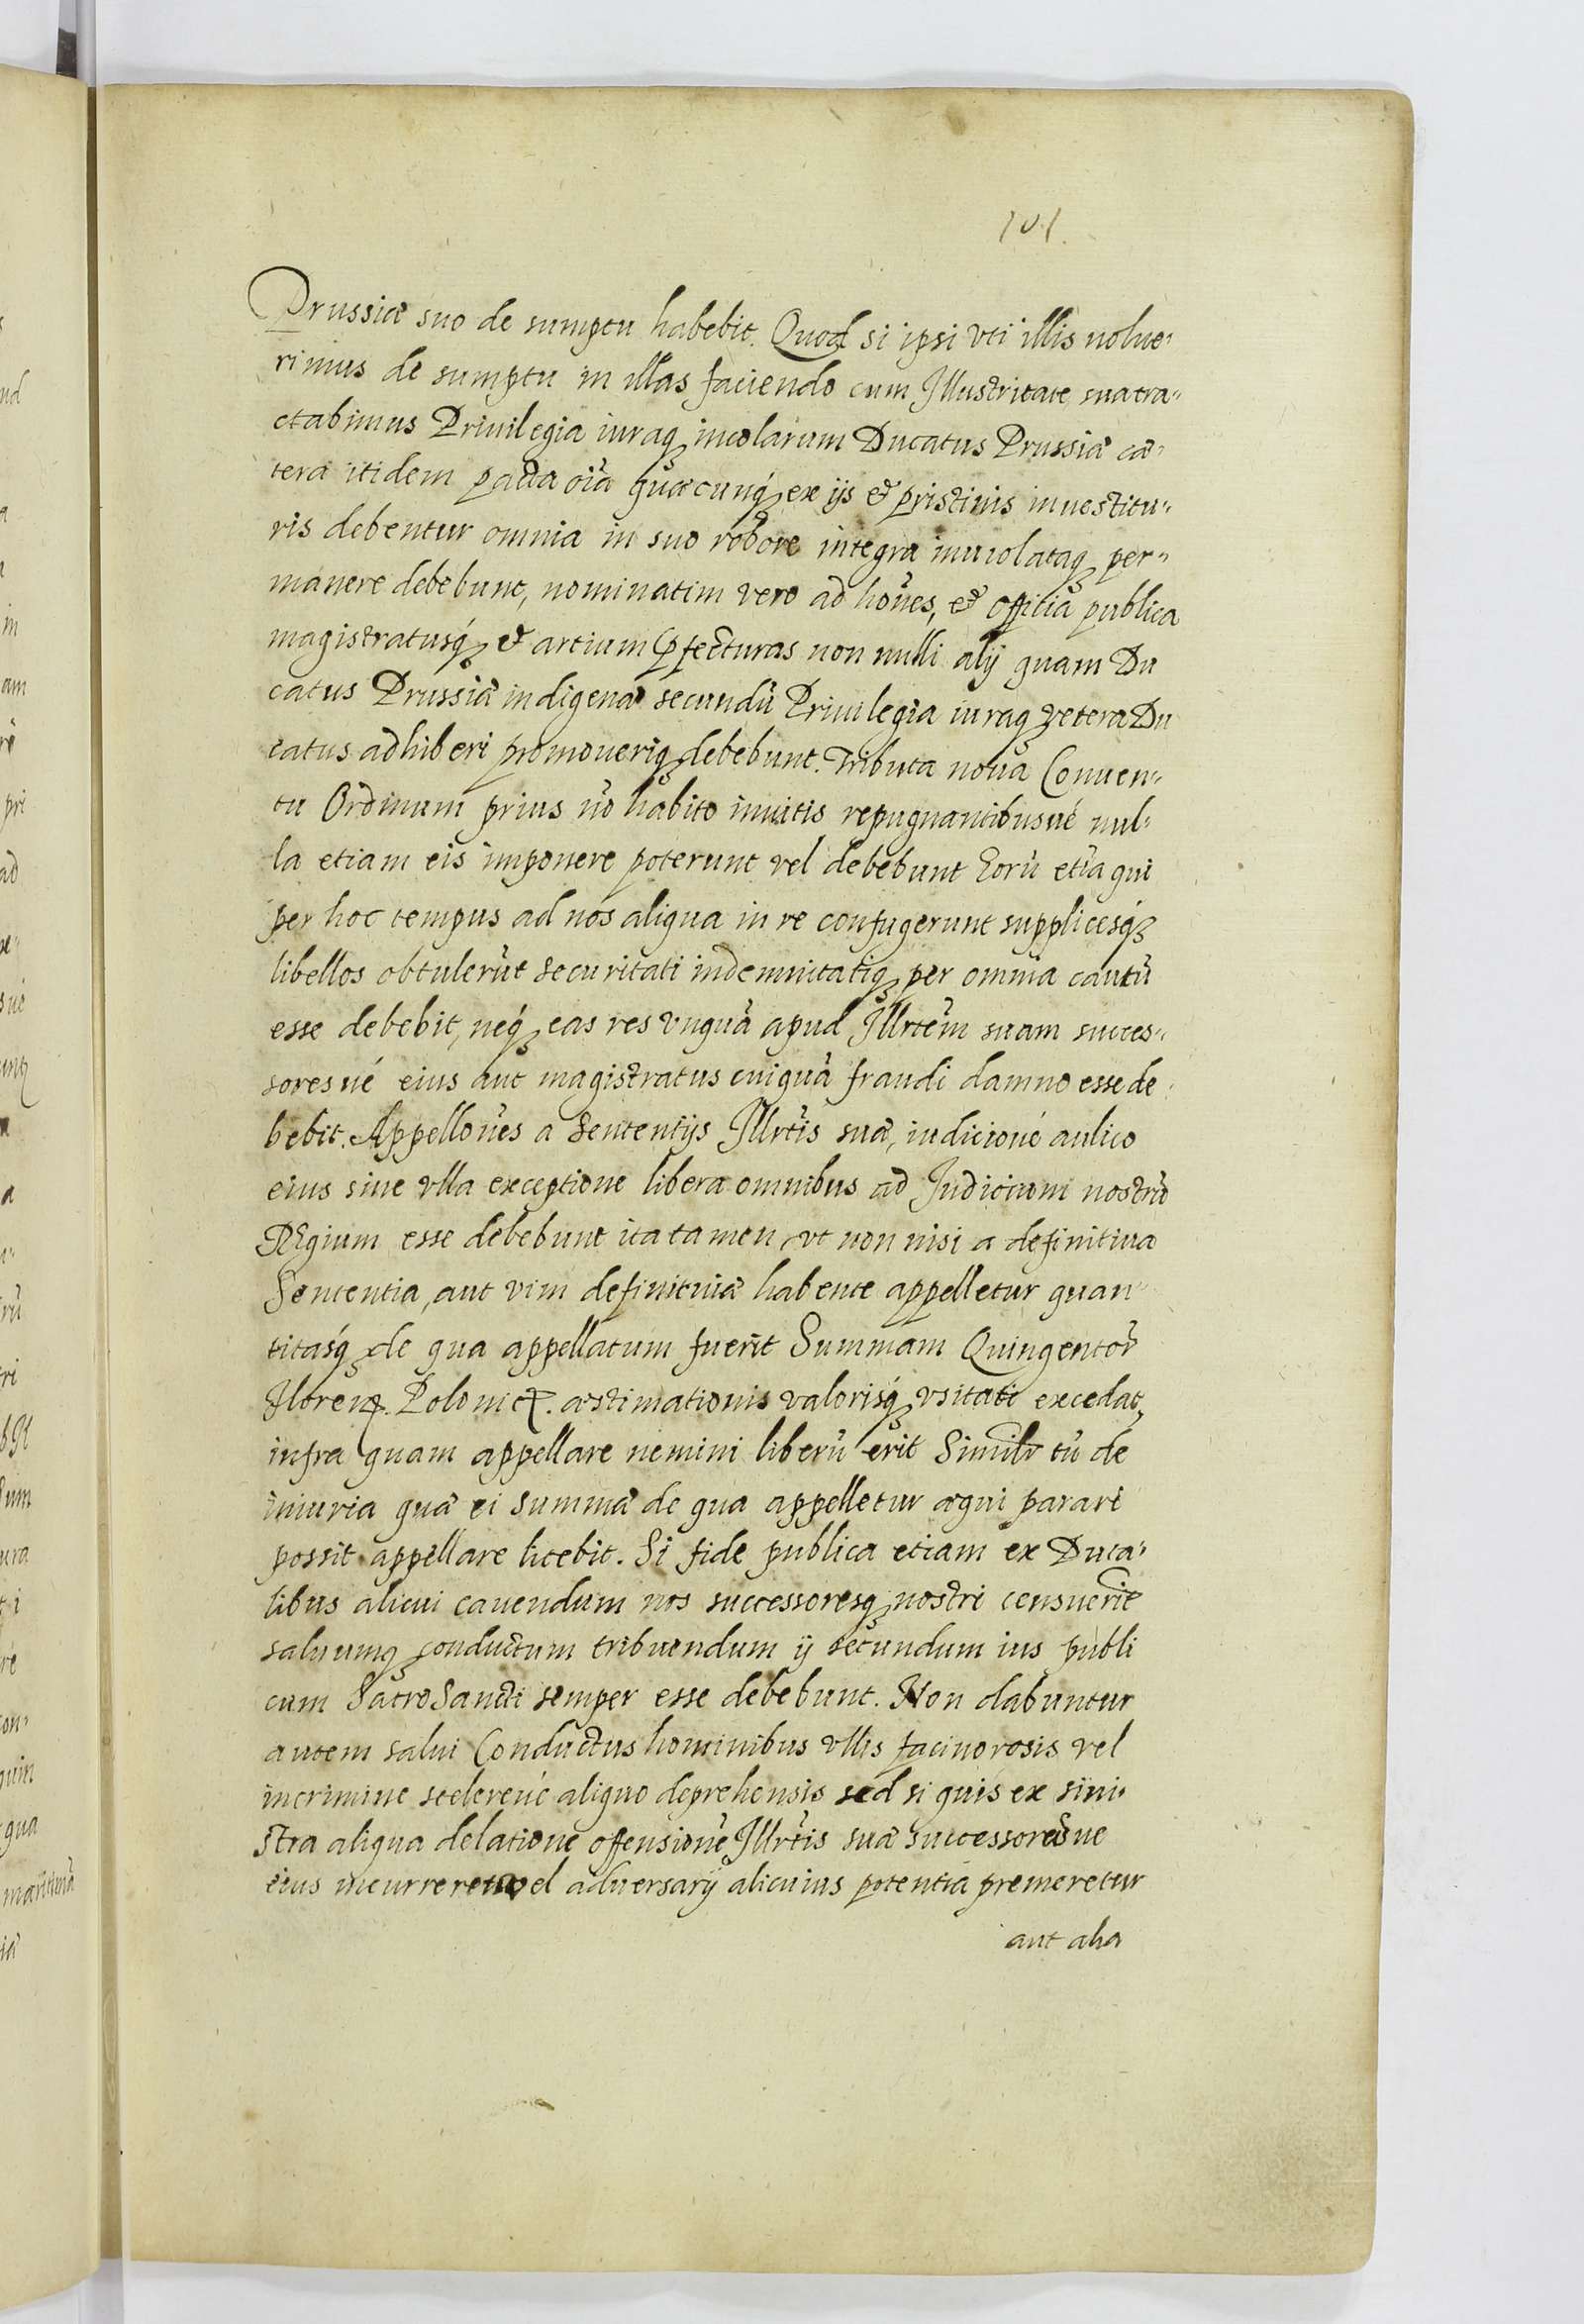 101.
Prussiæ suo de sumptu habebit. Quod si ipsi vti illis volue„
rimus de sumptu in illas faciendo cum Illustritate sua tra„
ctabimus Priuilegia iuraq₃ incolarum Ducatus Prussiæ cæ„
tera itidem pacta oia᷉ quæcunq₃ ex ijs et pristinis inuestitu„
ris debentur omnia in suo robore integra inuiolataq₃ per„
manere debebunt, nominatim vero ad hoñes, et officia publica
magistratusq₃ et artium p̱fecturas non nulli alij quam Du
catus Prussiæ indigenæ secundũ Priuilegia iuraq₃ vetera Du
catus adhiberi promoueriq₃ debebunt. Tributa noua Conuen„
tu Ordinum prius nõ habito inuitis repugnantibusué nul„
la etiam eis imponere poterunt vel debebunt Eorũ etiã qui
per hoc tempus ad nos aliqua in re confugerunt supplicesq₃
libellos obtulerũt securitati indemnitatiq₃ per omnia cautũ
esse debebit, neq₃ eas res vnquã apud Illrtem̃ suam succes„
sores ué eius aut magistratus cuiquã fraudi damno esse de„
bebit. Appelloñes a Sententijs Illrtĩs suæ, iudicioué aulico
eius sine vlla exceptione libera omnibus ad Judicium nostrũ
REgium esse debebunt ita tamen, vt non nisi a definitiua
Sententia, aut vim definitiuæ habente appelletur quan„
titasq₃ de qua appellatum fuerit Summam Quingentor̃
Florenꝝ. Polonicꝝ. æstimationis valorisq₃ vsitati excedat,
infra quam appellare nemini liberũ erit Similr tũ de
iniuria quæ ei summæ de qua appelletur æqui parari
possit appellare licebit. Si fide publica etiam ex Duca„
libus alicui cauendum nos successoresq₃ nostri censuerit
saluumq₃ conductum tribuendum ij secundum ius publi
cum SacroSancti semper esse debebunt. Non dabuntur
autem salui Conductus hominibus vllis facinorosis vel
in crimine scelereué aliquo deprehensis sed si quis ex sini„
stra aliqua delatione offensionẽ Illrtĩs suæ successoresue
eius incurreret vel aduersarij alicuius potentia premeretur
aut alia